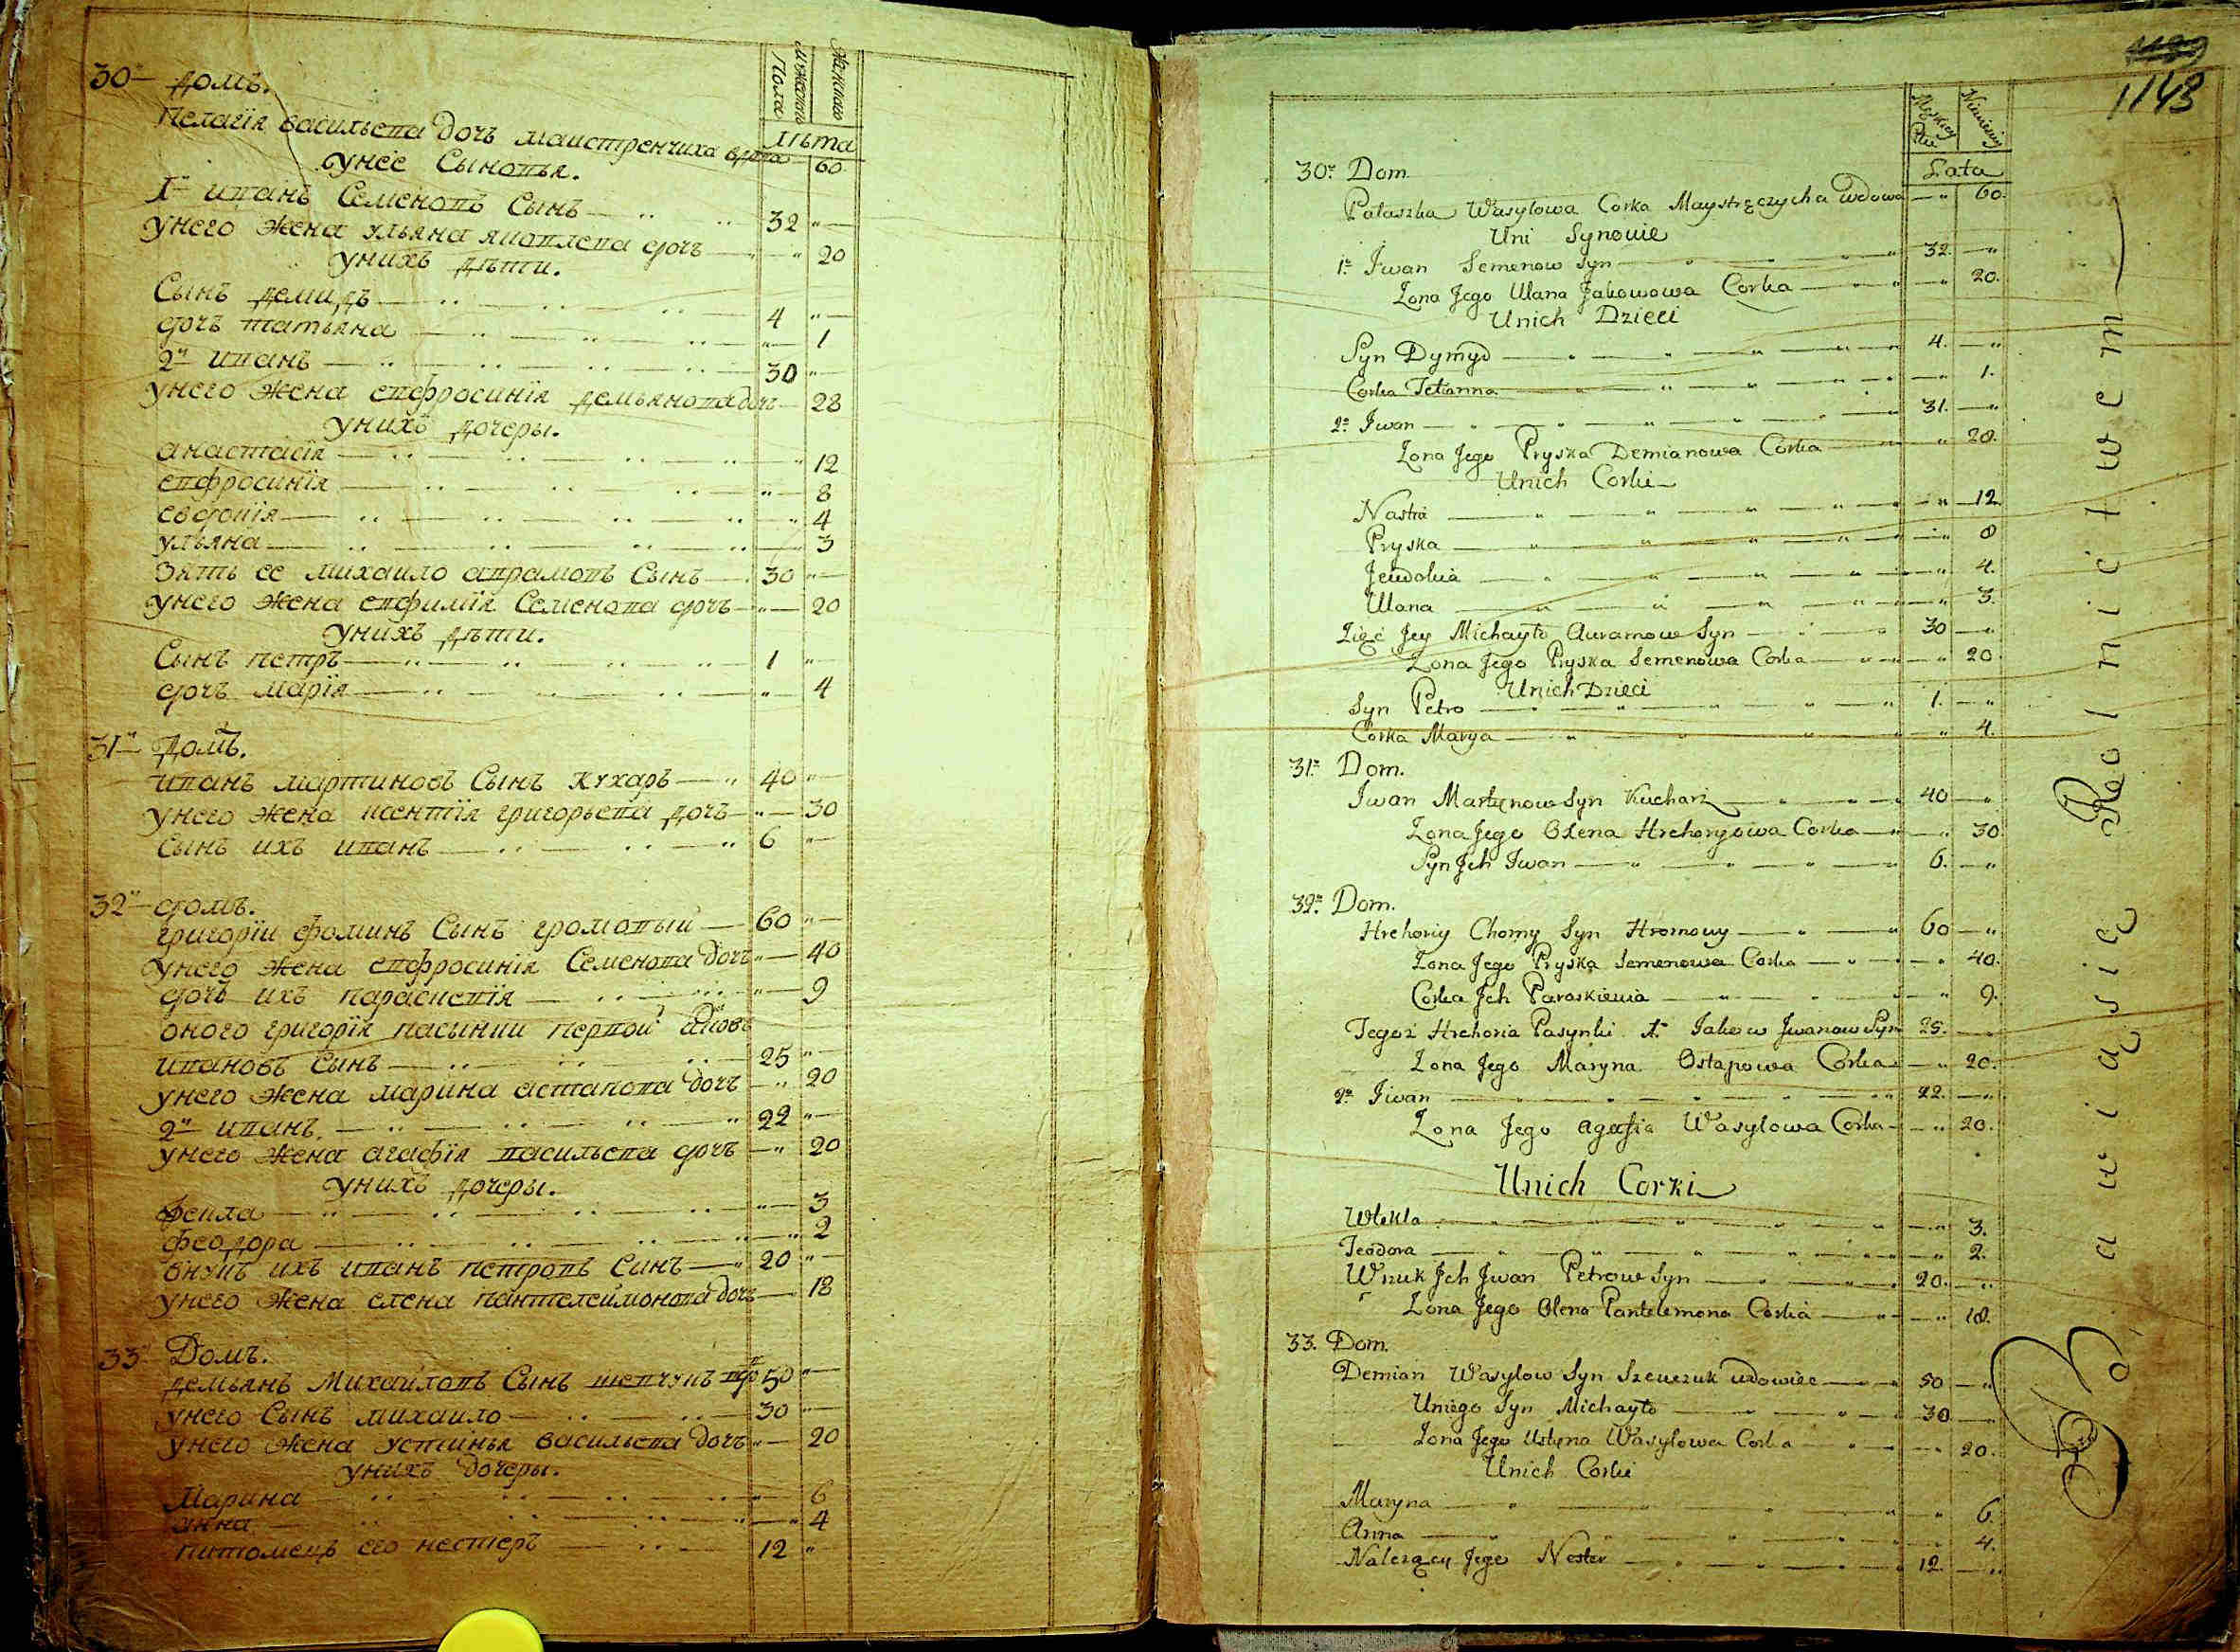 мужеска
Пола
женска
Лѣта
30й домъ.
Пелагія васильева дочь маистренчиха вдова — 60
унее Сыновья.
1й иванъ Семеновъ Сынъ — 32 "
унего жена ульяна яковлева дочь — " 20
унихъ дѣти.
Сынъ демидъ — 4 "
дочь татьяна — " 1
2й иванъ — 30 "
унего жена евфросинія демьянова дочь — 28
унихъ дочеры.
анастасія — " 12
евфросинія — " 8
евдокія — " 4
ульяна — " 3
зять ее михаило аврамовъ Сынъ — 30 "
унего жена евфимія Семенова дочь — " 20
унихъ дѣти.
Сынъ петръ — 1 "
дочь марія — " 4
31й домъ.
иванъ мартиновъ Сынъ кухаръ — 40 "
унего жена ксентія григорьева дочь — " 30
Сынъ ихъ иванъ — 6 "
32й домъ.
григоріи фоминъ Сынъ громовый — 60 "
унего жена евфросинія Семенова дочь " — 40
дочь ихъ параскевія — " 9
оного григорія пасынки первой яковъ
ивановъ Сынъ — 25 "
унего жена марина астапова дочь — " 20
2й иванъ — 22 "
унего жена агафія васильева дочь — " 20
унихъ дочеры.
фекла — " 3
феодора — " 2
внукъ ихъ иванъ петровъ Синъ — 20 "
унего жена елена пантелеимонова дочь — 18
33й Домъ.
демьянъ Михаиловъ Сынъ шевчукъ вдов 50 "
унего Сынъ михаило — 30 "
унего жена устинья васильева дочь " — 20
унихъ дочеры.
Марина — " 6
анна — " 4
питомецъ его нестеръ — 12 "
1143
Męzkiey
Płci
Lata
30o Dom
Pałaszka Wasylowa Corka Maystręczycha wdowa — " 60.
Uni Synowie
1o Jwan Semenow Syn — 32. — "
Zona Jego Ulana Jakowowa Corka — " 20.
Unich Dzieci
Syn Dymyd — 4. — "
Corka Tetianna — " 1.
2o Jwan — 31. — "
Zona Jego Pryska Demianowa Corka — " 28.
Unich Corki
Nastia — " 12
Pryska — " 8
Jewdokia — " 4.
Ulana — " 3.
Zięć Jey Michayło Auramow Syn — 30 — "
Zona Jego Pryska Semenowa Corka — " 20.
Unich Dzieci
Syn Petro — 1. — "
Corka Marya — " 4.
31o Dom.
Jwan Martynow Syn Kucharz — 40 — "
Zona Jego Oxena Hrehoryowa Corka — " 30
Syn Jch Jwan — 6. — "
32o Dom.
Hrehory Chomy Syn Hromowy — 60 — "
Zona Jego Pryska Semenowa Corka — " 40.
Corka Jch Paraskiewia — " 9.
Tegoż Hrehoria Pasynki 1o Jakow Jwanow Syn 25. — "
Zona Jego Maryna Ostapowa Corka — " 20.
2o Jwan — 22. — "
Zona Jego Agafia Wasylowa Corka — " 20.
Unich Corki
Wtekla — " 3.
Teodora — " 2.
Wnuk Jch Jwan Petrow Syn — 20. — "
Zona Jego Olena Pantelemona Corka — " 18.
33. Dom.
Demian Wasylow Syn Szewczuk wdowiec — 50 — "
Uniego Syn Michayło — 30 — "
Zona Jego Ustyna Wasylowa Corka — " 20.
Unich Corki
Maryna — " 6.
Anna — " 4.
Należący Jego Nester — 12. — "